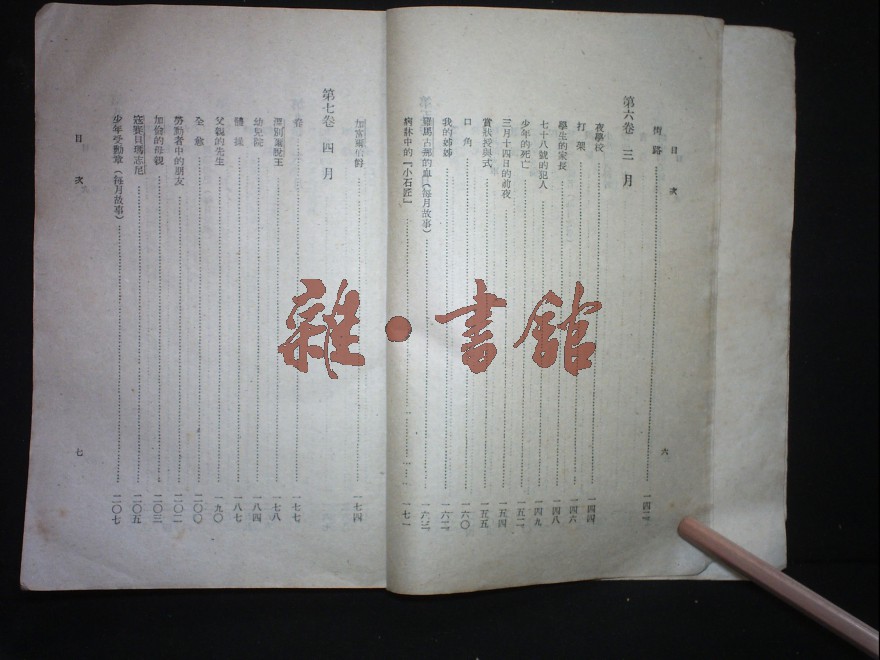 目次
六
街路 一四二
第六卷 三月
夜學校 一四四
打架 一四六
學生的家長 一四八
七十八號的犯人 一四九
少年的死亡 一五二
三月十四日的前夜 一五四
賞狀授與式 一五五
口角 一六〇
我的姊姊 一六二
羅馬古納的血（每月故事） 一六三
病牀中的「小石匠」 一七一
加富爾伯爵 一七四
第七卷 四月
春 一七七
一七八
幼兒院 一八四
體操 一八七
父親的先生 一九〇
全愈 二〇〇
勞動者中的朋友 二〇二
加倫的母親 二〇三
寇賽貝瑪志尼 二〇五
少年受勳章（每月故事） 二〇七
目次
七
雜·書館